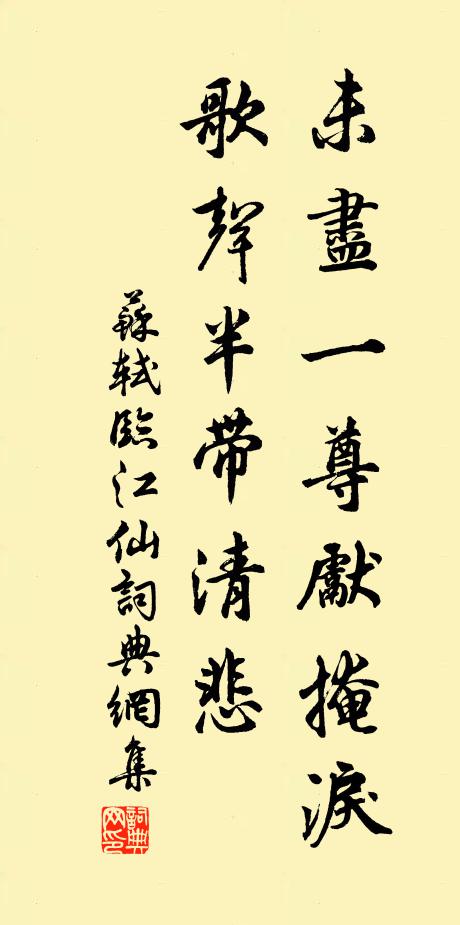 未盡一尊獻掩淚
歌聲半帶清悲
蘇軾臨江仙詞典網集
詞典
网印